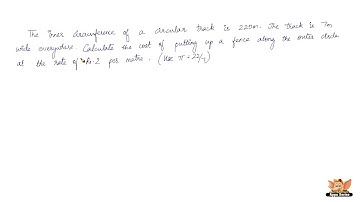 The Inner circumference of a circular track is 220m. The track is 7m
wide everywhere. Calculate the cost of putting up a fence along the outer circle
at the rate of Rs. 2 per metre. (Use π = 22/7)